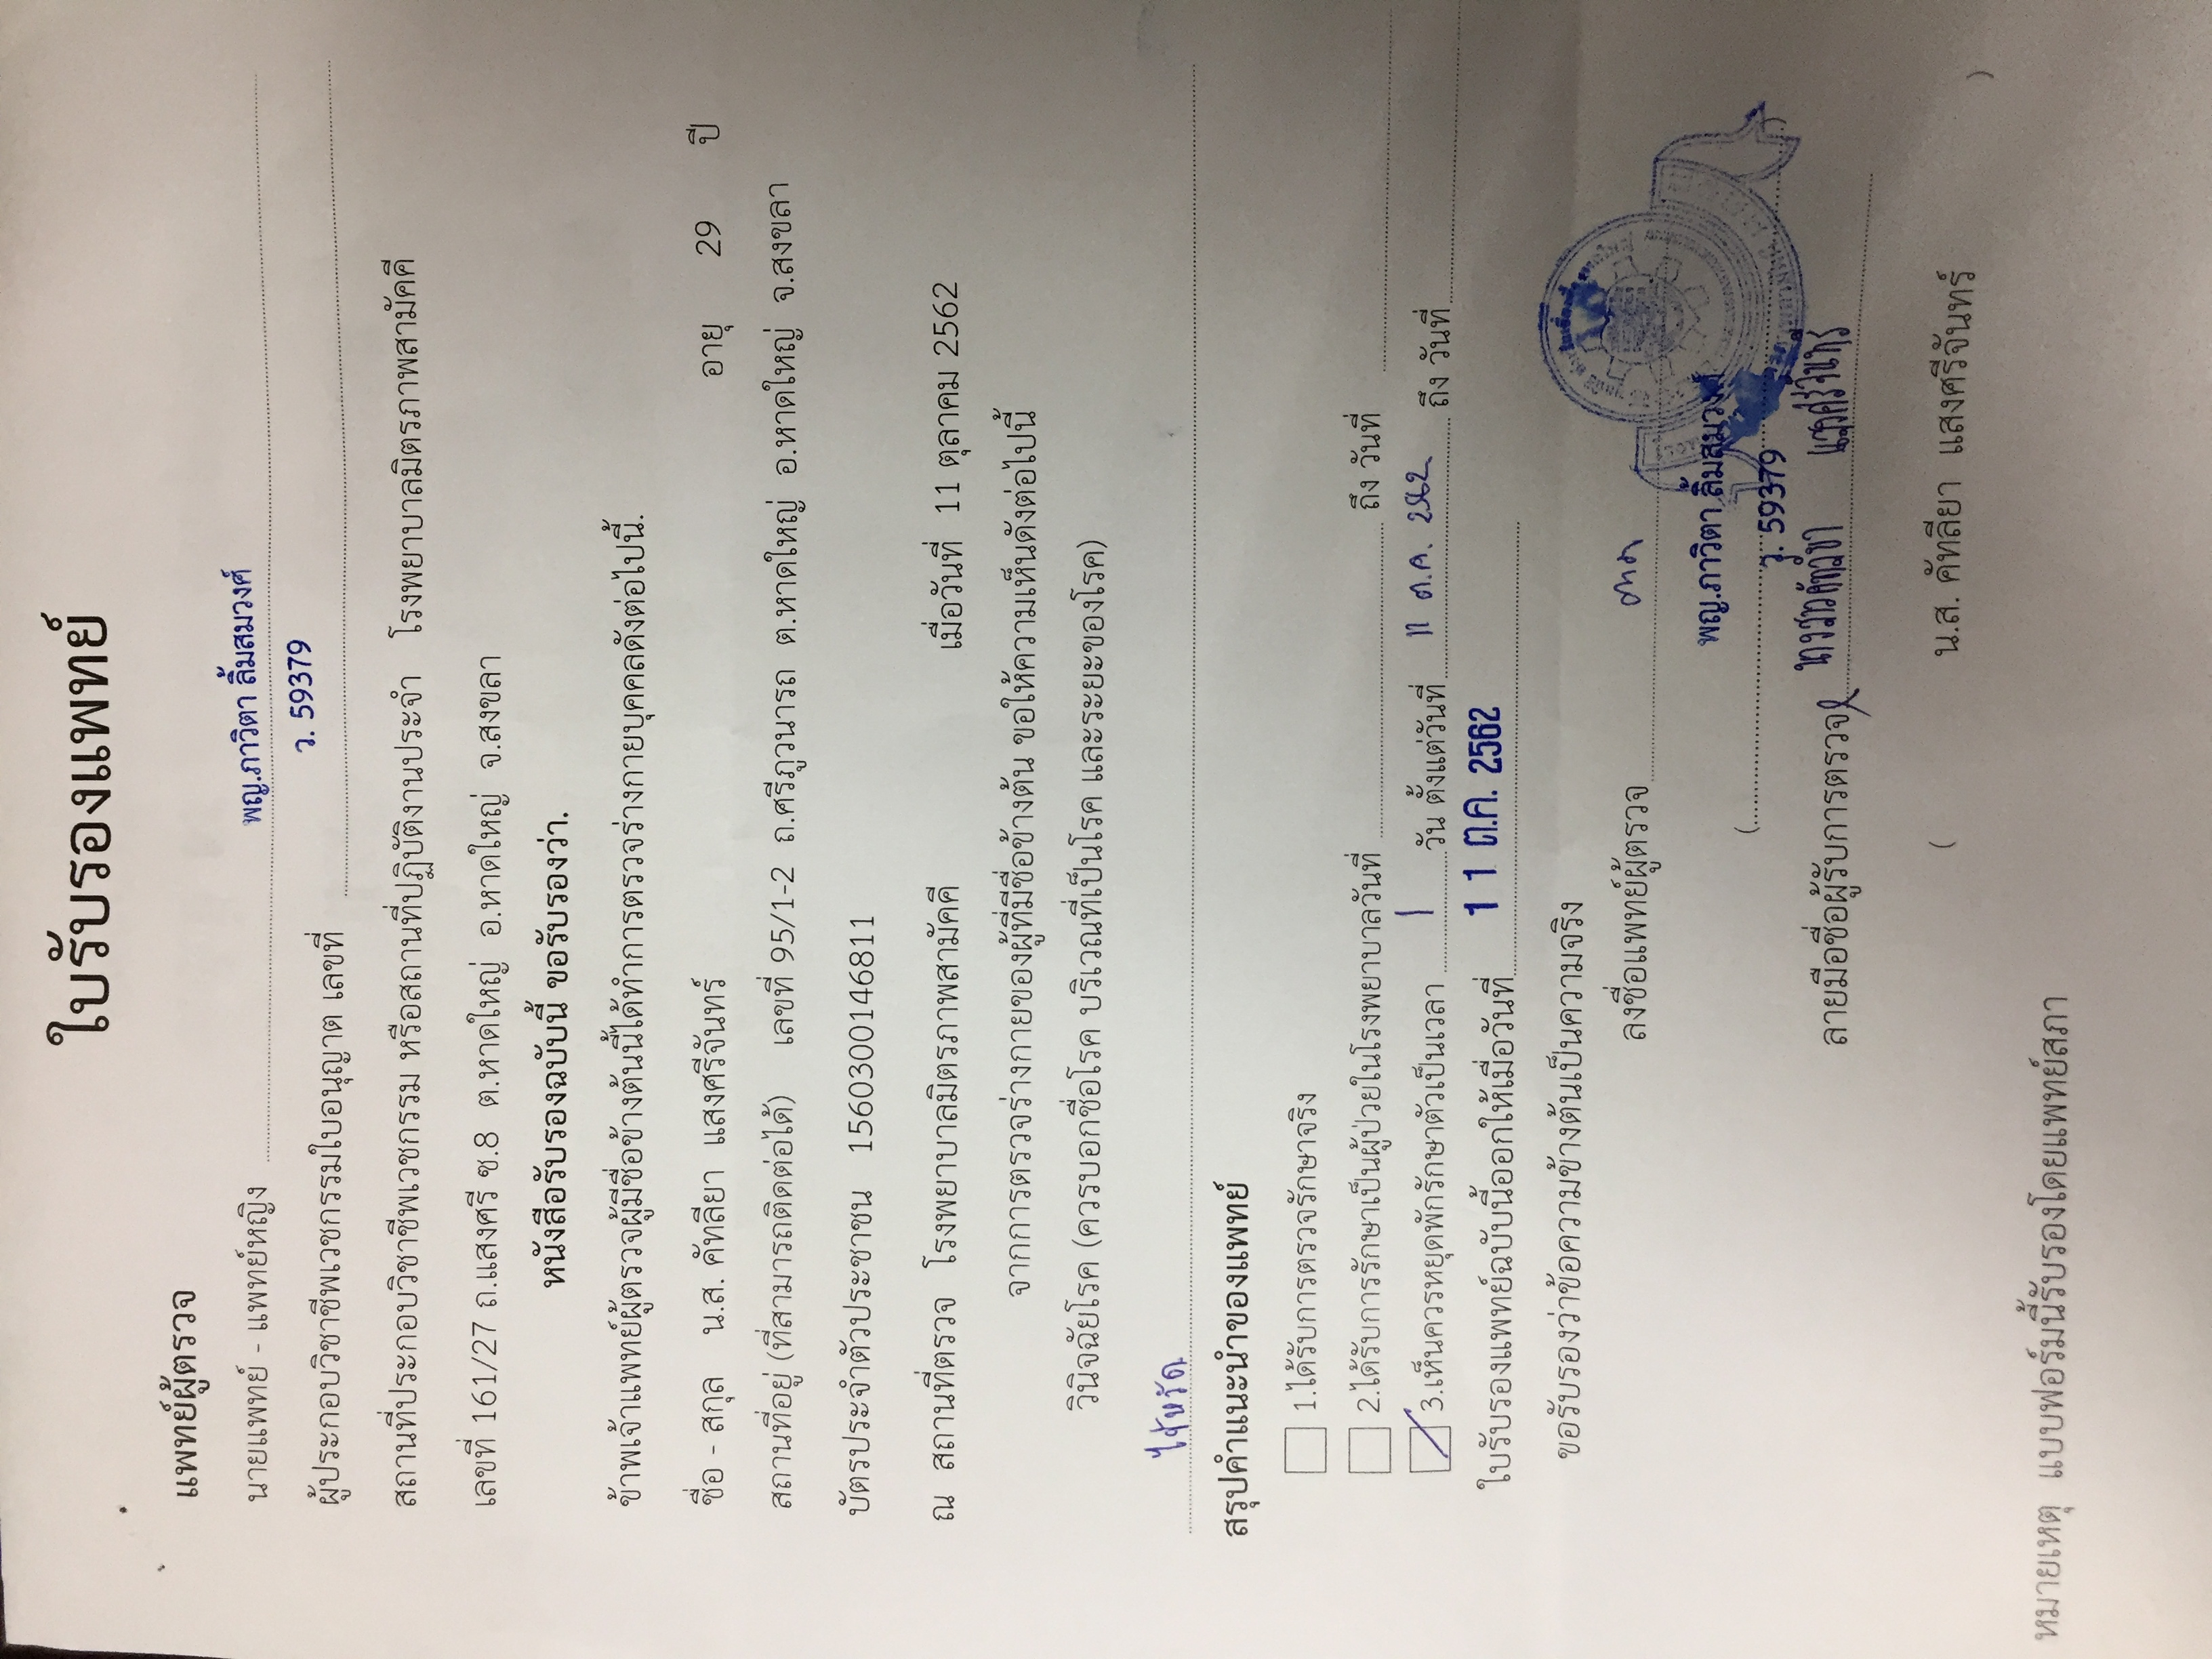 ใบรับรองแพทย์
แพทย์ผู้ตรวจ
นายแพทย์ - แพทย์หญิง พญ.ภาวิตา ลิ้มสมวงศ์
ผู้ประกอบวิชาชีพเวชกรรมใบอนุญาต เลขที่ ว. 59379
สถานที่ประกอบวิชาชีพเวชกรรม หรือสถานที่ปฏิบัติงานประจำ โรงพยาบาลมิตรภาพสามัคคี
เลขที่ 161/27 ถ.แสงศรี ซ.8 ต.หาดใหญ่ อ.หาดใหญ่ จ.สงขลา
หนังสือรับรองฉบับนี้ ขอรับรองว่า.
ข้าพเจ้าแพทย์ผู้ตรวจผู้มีชื่อข้างต้นนี้ได้ทำการตรวจร่างกายบุคคลดังต่อไปนี้.
ชื่อ - สกุล น.ส. คัทลียา แสงศรีจันทร์ อายุ 29 ปี
สถานที่อยู่ (ที่สามารถติดต่อได้) เลขที่ 95/1-2 ถ.ศรีภูวนารถ ต.หาดใหญ่ อ.หาดใหญ่ จ.สงขลา
บัตรประจำตัวประชาชน 1560300146811
ณ สถานที่ตรวจ โรงพยาบาลมิตรภาพสามัคคี เมื่อวันที่ 11 ตุลาคม 2562
จากการตรวจร่างกายของผู้ที่มีชื่อข้างต้น ขอให้ความเห็นดังต่อไปนี้
วินิจฉัยโรค (ควรบอกชื่อโรค บริเวณที่เป็นโรค และระยะของโรค)
ไข้หวัด
สรุปคำแนะนำของแพทย์
1.ได้รับการตรวจรักษาจริง
2.ได้รับการรักษาเป็นผู้ป่วยในโรงพยาบาลวันที่ ถึง วันที่
3.เห็นควรหยุดพักรักษาตัวเป็นเวลา 1 วัน ตั้งแต่วันที่ 11 ต.ค. 2562 ถึง วันที่
ใบรับรองแพทย์ฉบับนี้ออกให้เมื่อวันที่ 11 ต.ค. 2562
ขอรับรองว่าข้อความข้างต้นเป็นความจริง
ลงชื่อแพทย์ผู้ตรวจ
พญ.ภาวิตา ลิ้มสมวงศ์
(
ว. 59379
ลายมือชื่อผู้รับการตรวจ นางสาวคัทลียา แสงศรีจันทร์
( น.ส. คัทลียา แสงศรีจันทร์ )
หมายเหตุ แบบฟอร์มนี้รับรองโดยแพทย์สภา